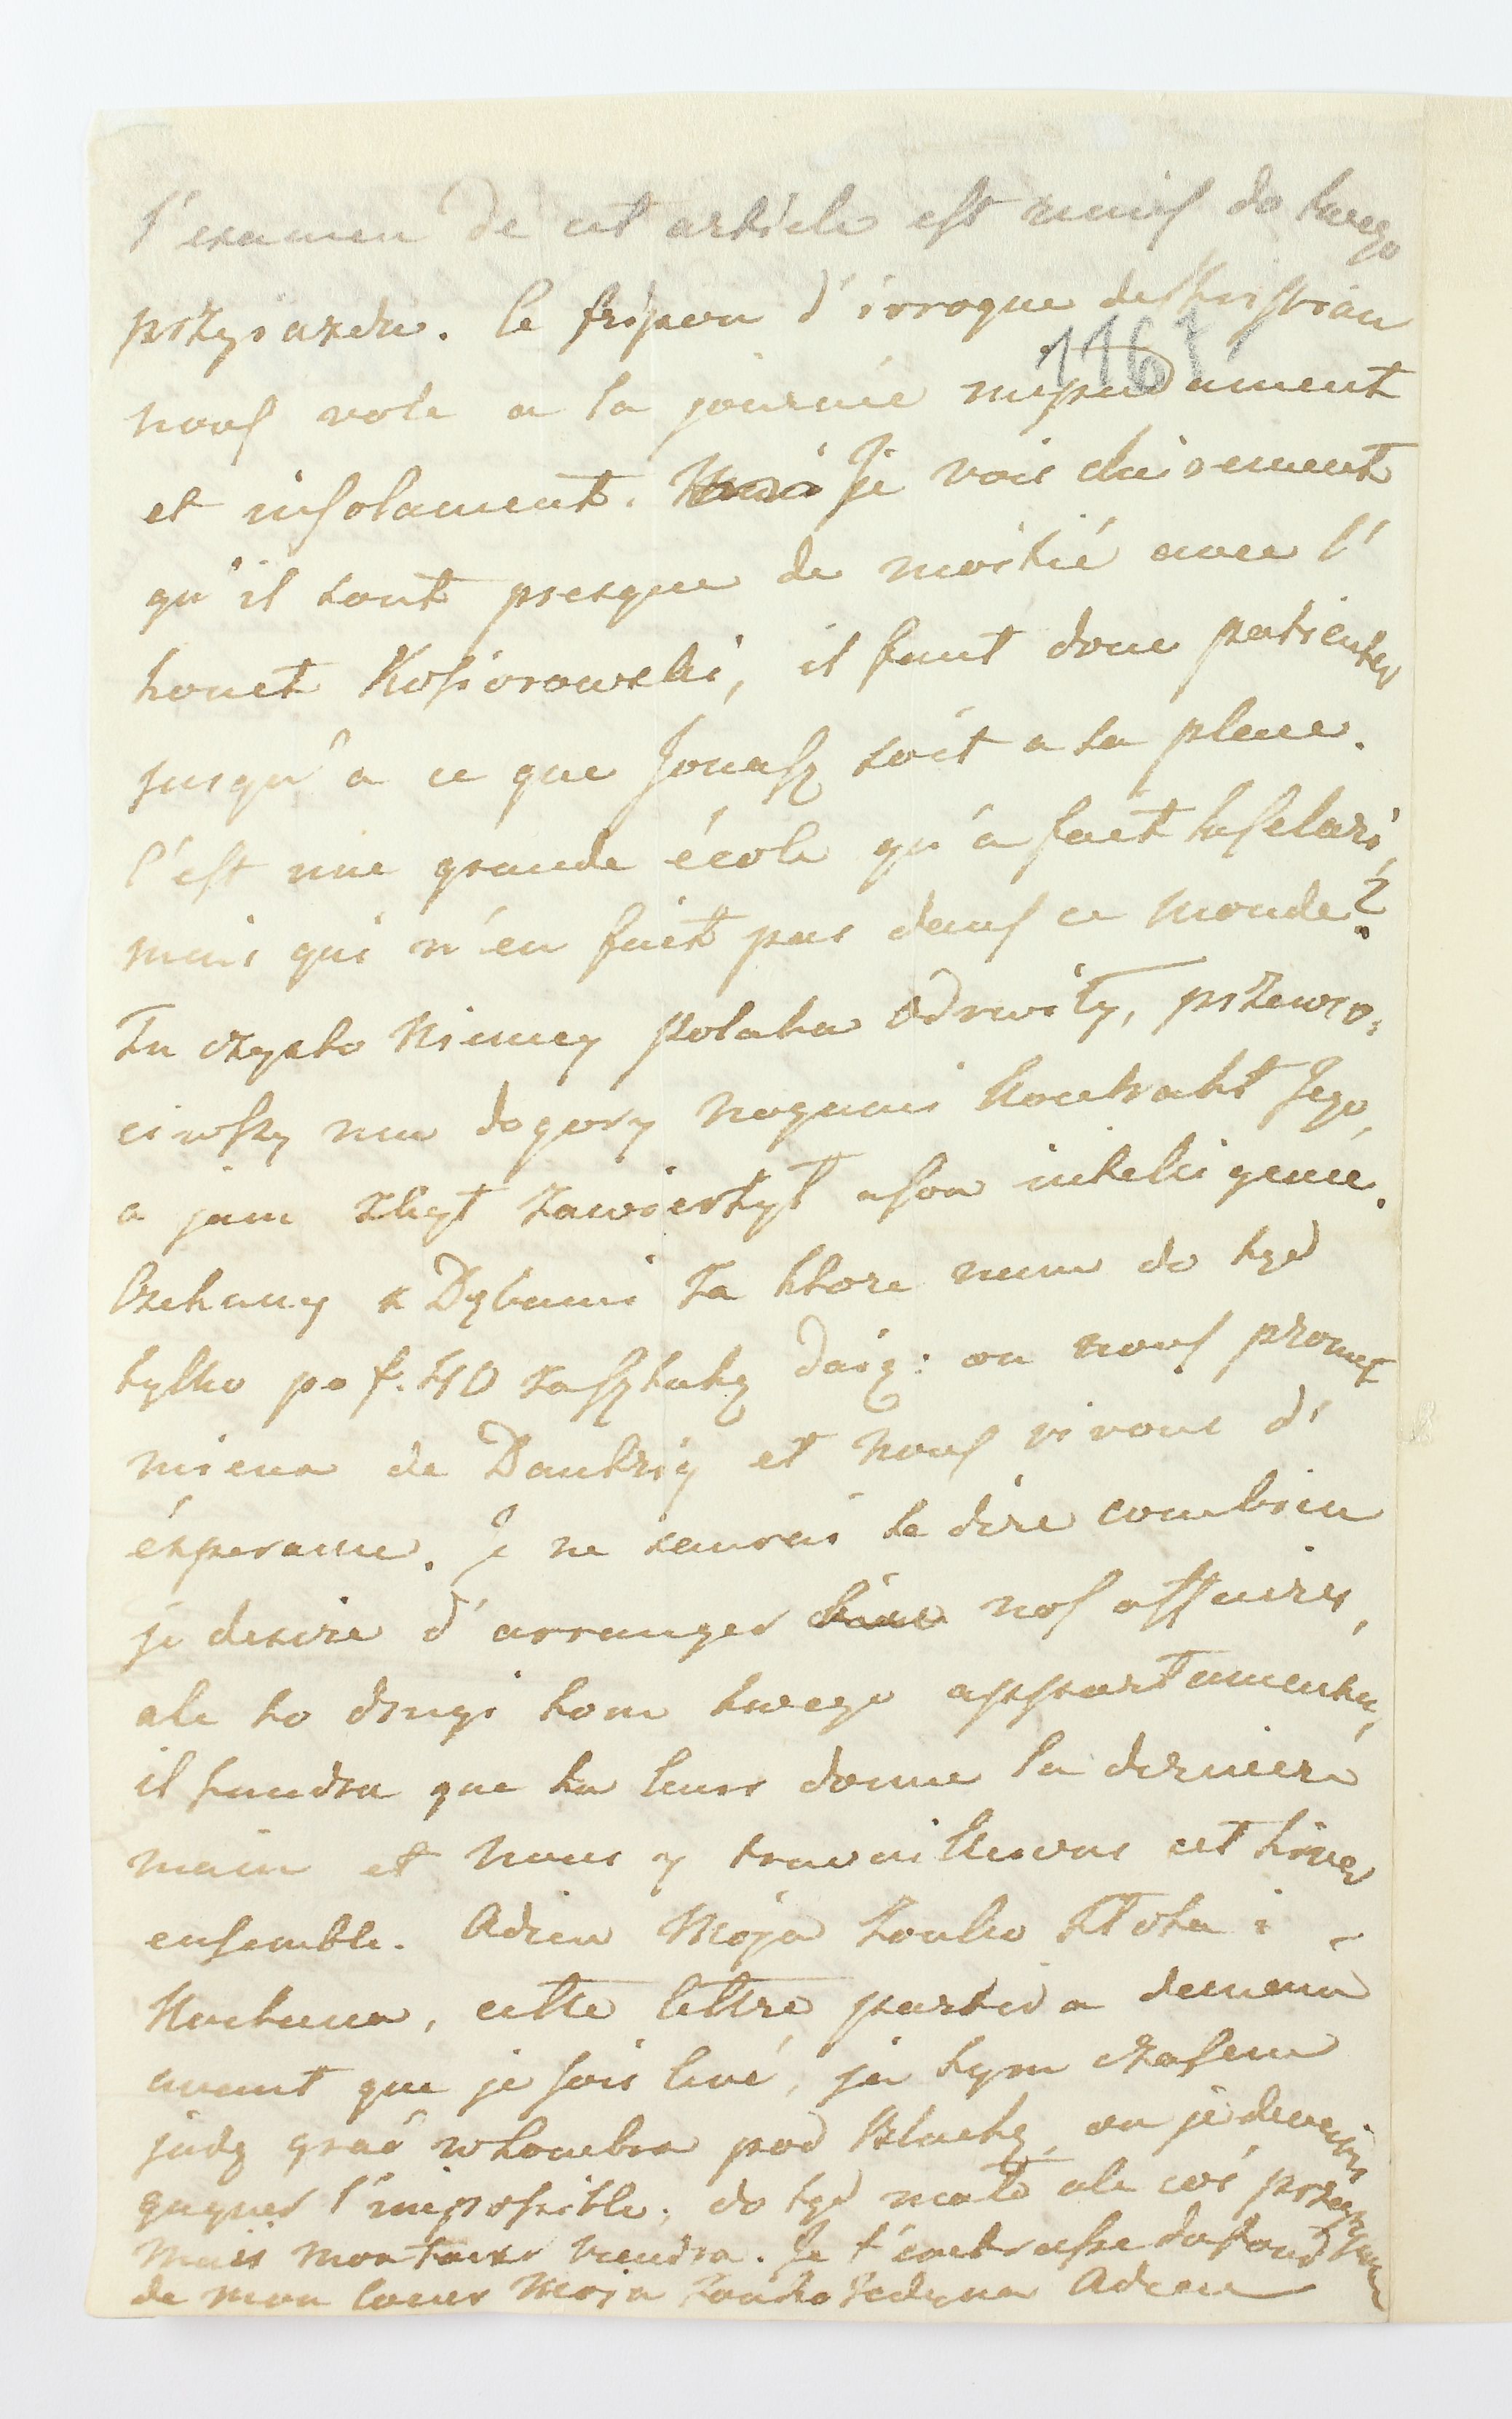 l'examen de cet article est remis do twego
przyiazdu. le fripon d'ivroque de
1161
nous vole a la journée impudament
et insolament. Je vois clairement
qu'il sont presque de moitié avec l'
honet Kossorowski, il faut donc patienter
jusqu'a ce que Jonasz soit a sa place.
C'est une grande école qu'a fait
mais qui n'en fait pas dans ce monde?
Tu czysto Niemcy Polaka odrwiły, przewro,
ciwszy mu dogory nogami Kontrakt Jego,
a jam zbyt zawierzył a son inteligence.
Czekamy z Dębami za ktore nam do tąd
tylko po f. 40 za sztukę daią: on nous promet
mieux de Dantzig et nous vivons d'
ésperance. Je ne saurai te dire combien
je desire d'arranger nos affaires,
ale to drugi tom twego appartamentu,
il faudra que tu leur donne la derniere
main et nous y travaillerons cet hiver
ensemble. Adieu Moja Zonko Złota i
Kochana, cette lettre partira demain
avant que je sois levé, ja tym czasem
jadę grać w hombra pod Blachę, ou je devrois
gagner l'impossible, do tąd mało ale coś
mais mon tour viendra. Je t'embrasse du fond
de mon Coeur Moja Zonko Jedyna Adieu